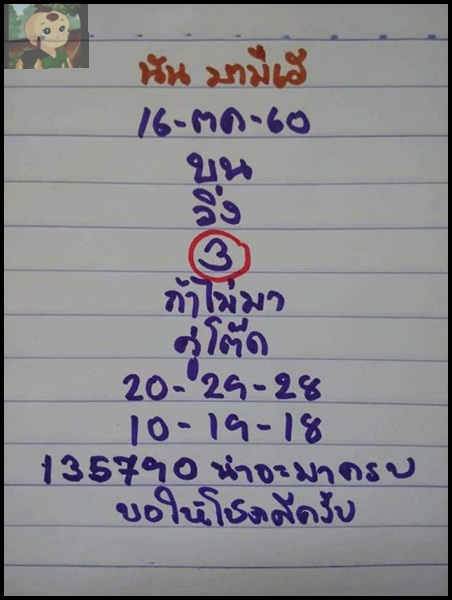 นัน มามีเฮ
16-ตค-60
บน
วิ่ง
3
ถ้าไม่มา
คู่โต๊ด
20-29-28
10-19-18
135790 น่าจะมาครบ
ขอให้โชคดีครับ